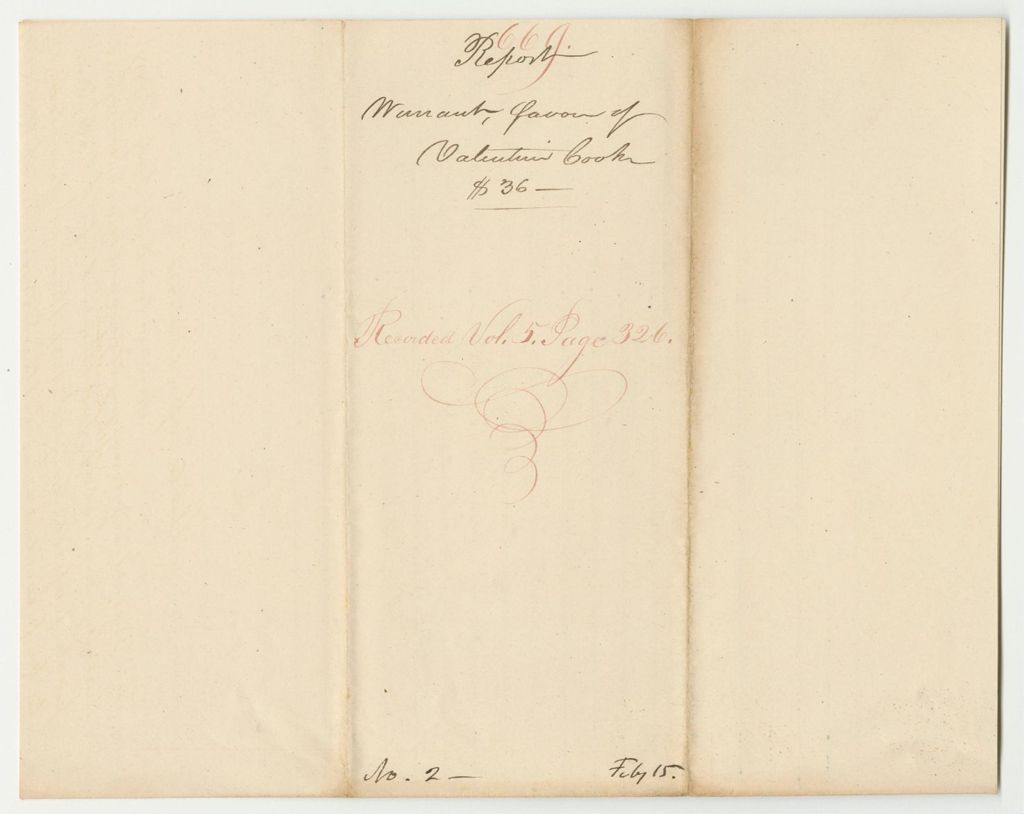 669.
Report
Warrant, favour of
Valentine Cook
$36—
Recorded Vol. 5. Page 326.
No. 2— Feby 15.